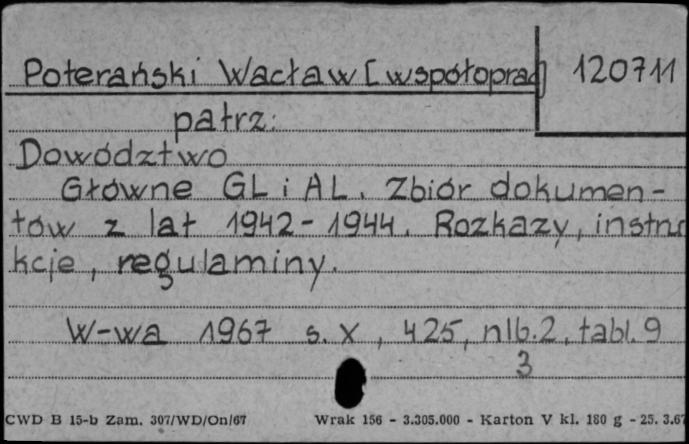 Poterański Wacław [współoprac] 120711
patrz:
Dowództwo
Główne GL i AL. Zbiór dokumen-
tów z lat 1942-1944. Rozkazy, instru
kcje, regulaminy.
W-wa 1967 s. X, 425, nlb. 2, tabl. 9
3
CWD B 15-b Zam. 307/WD/On/67 Wrak 156 - 3.305.000 - Karton V kl. 180 g - 25. 3.67